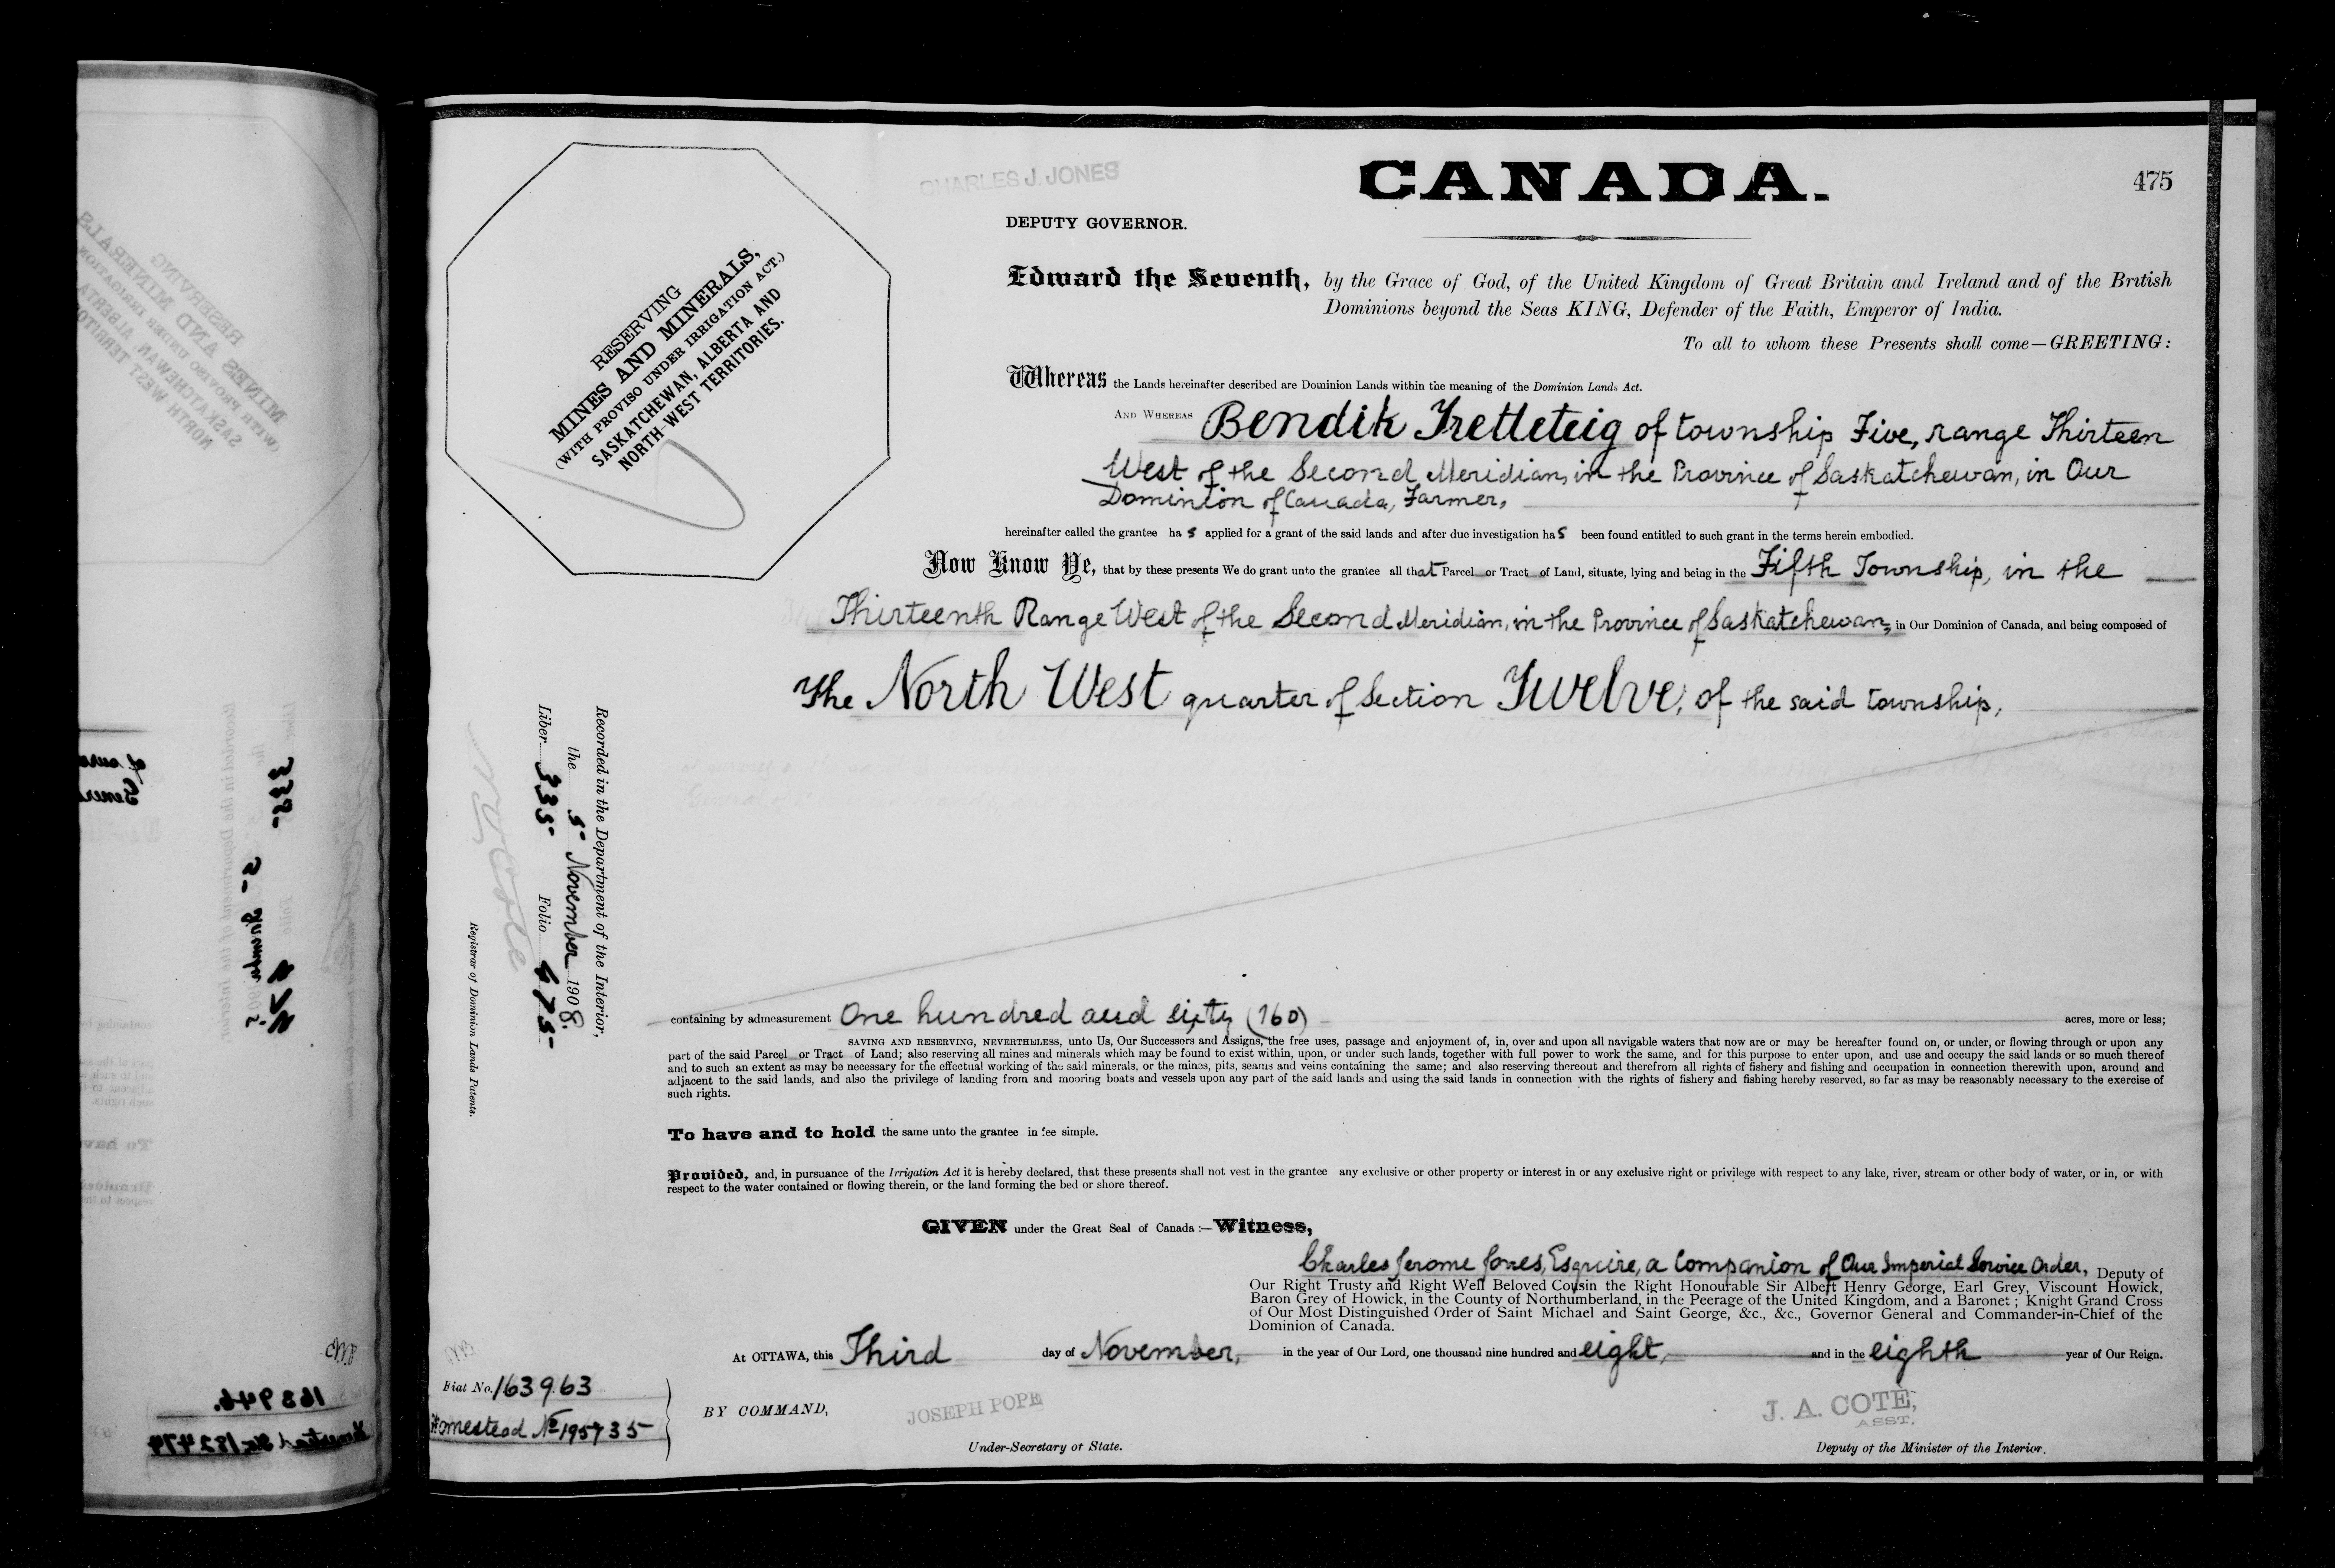 CHARLES J. JONES
CANADA.
475
DEPUTY GOVERNOR.
RESERVING
MINES AND MINERALS,
(WITH PROVISO UNDER IRRIGATION ACT.)
SASKATCHEWAN, ALBERTA AND
NORTH WEST TERRITORIES.
Edward the Seventh, by the Grace of God, of the United Kingdom of Great Britain and Ireland and of the British
Dominions beyond the Seas KING, Defender of the Faith, Emperor of India.
To all to whom these Presents shall come—GREETING:
Whereas the Lands hereinafter described are Dominion Lands within the meaning of the Dominion Lands Act.
AND WHEREAS Bendik Tretteteig of township Five, range Thirteen
West of the Second Meridian, in the Province of Saskatchewan, in Our
Dominion of Canada, Farmer,
hereinafter called the grantee has applied for a grant of the said lands and after due investigation has been found entitled to such grant in the terms herein embodied.
Now Know Ye, that by these presents We do grant unto the grantee all that Parcel or Tract of Land, situate, lying and being in the Fifth Township, in the
Thirteenth Range West of the Second Meridian, in the Province of Saskatchewan, in Our Dominion of Canada, and being composed of
The North West quarter of Section Twelve, of the said township,
Recorded in the Department of the Interior,
the 5 November 1908.
Liber 335 Folio 475
Registrar of Dominion Lands Patents.
containing by admeasurement One hundred and sixty (160) acres, more or less;
SAVING AND RESERVING, NEVERTHELESS, unto Us, Our Successors and Assigns, the free uses, passage and enjoyment of, in, over and upon all navigable waters that now are or may be hereafter found on, or under, or flowing through or upon any
part of the said Parcel or Tract of Land; also reserving all mines and minerals which may be found to exist within, upon, or under such lands, together with full power to work the same, and for this purpose to enter upon, and use and occupy the said lands or so much thereof
and to such an extent as may be necessary for the effectual working of the said minerals, or the mines, pits, seams and veins containing the same; and also reserving thereout and therefrom all rights of fishery and fishing and occupation in connection therewith upon, around and
adjacent to the said lands, and also the privilege of landing from and mooring boats and vessels upon any part of the said lands and using the said lands in connection with the rights of fishery and fishing hereby reserved, so far as may be reasonably necessary to the exercise of
such rights.
To have and to hold the same unto the grantee in fee simple.
Provided, and, in pursuance of the Irrigation Act it is hereby declared, that these presents shall not vest in the grantee any exclusive or other property or interest in or any exclusive right or privilege with respect to any lake, river, stream or other body of water, or in, or with
respect to the water contained or flowing therein, or the land forming the bed or shore thereof.
GIVEN under the Great Seal of Canada :—Witness,
Charles Jerome Jones, Esquire, a Companion of Our Imperial Service Order, Deputy of
Our Right Trusty and Right Well Beloved Cousin the Right Honourable Sir Albert Henry George, Earl Grey, Viscount Howick,
Baron Grey of Howick, in the County of Northumberland, in the Peerage of the United Kingdom, and a Baronet ; Knight Grand Cross
of Our Most Distinguished Order of Saint Michael and Saint George, &c., &c., Governor General and Commander-in-Chief of the
Dominion of Canada.
At OTTAWA, this Third day of November, in the year of Our Lord, one thousand nine hundred and eight, and in the eighth year of Our Reign.
Fiat No. 163963
Homestead No 195735
BY COMMAND,
JOSEPH POPE
Under-Secretary of State.
J. A. COTE,
ASST.
Deputy of the Minister of the Interior.